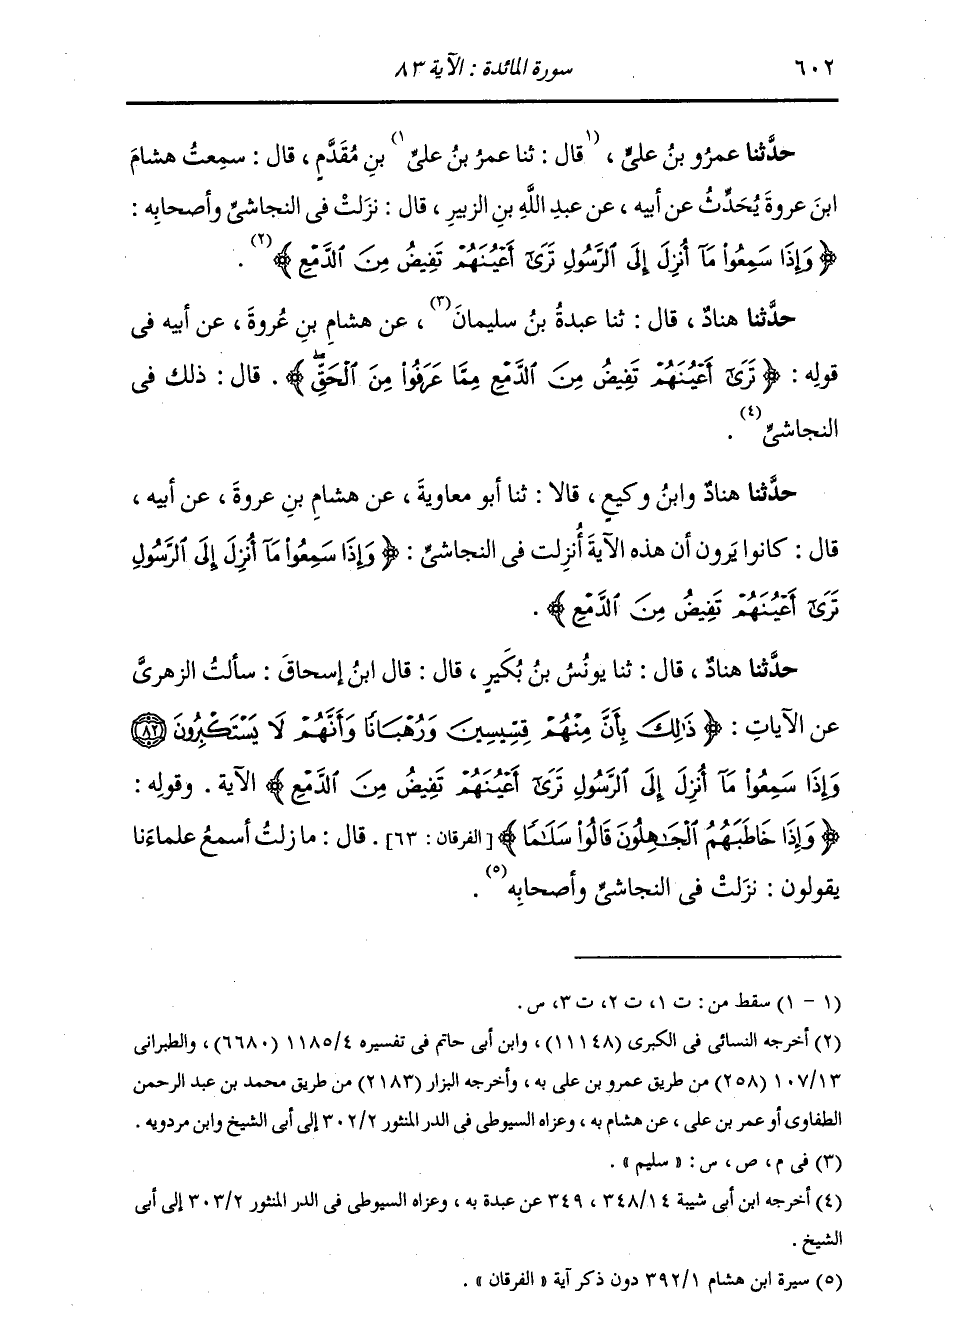 ٦٠٢ سورة المائدة : الآية ٨٣
حدَّثنا عمرُو بنُ علىٍّ ، (١)قال : ثنا عمرُ بنُ علىِّ(١) بنِ مُقَدَّمٍ ، قال : سمِعتُ هشامَ
ابنَ عروةَ يُحَدِّثُ عن أبيه ، عن عبدِ اللَّهِ بنِ الزبيرِ ، قال : نزَلتْ فى النجاشىِّ وأصحابِه :
﴿ وَإِذَا سَمِعُوا۟ مَآ أُنزِلَ إِلَى ٱلرَّسُولِ تَرَىٰٓ أَعْيُنَهُمْ تَفِيضُ مِنَ ٱلدَّمْعِ ﴾(٢) .
حدَّثنا هنادٌ ، قال : ثنا عبدةُ بنُ سليمانَ(٣) ، عن هشامِ بنِ عُروةَ ، عن أبيه فى
قولِه : ﴿ تَرَىٰٓ أَعْيُنَهُمْ تَفِيضُ مِنَ ٱلدَّمْعِ مِمَّا عَرَفُوا۟ مِنَ ٱلْحَقِّۖ ﴾ . قال : ذلك فى
النجاشىِّ(٤) .
حدَّثنا هنادٌ وابنُ وكيعٍ ، قالا : ثنا أبو معاويةَ ، عن هشامِ بنِ عروةَ ، عن أبيه ،
قال : كانوا يَرون أن هذه الآيةَ أُنزِلت فى النجاشىِّ : ﴿ وَإِذَا سَمِعُوا۟ مَآ أُنزِلَ إِلَى ٱلرَّسُولِ
تَرَىٰٓ أَعْيُنَهُمْ تَفِيضُ مِنَ ٱلدَّمْعِ ﴾ .
حدَّثنا هنادٌ ، قال : ثنا يونُسُ بنُ بُكَيرٍ ، قال : قال ابنُ إسحاقَ : سألتُ الزهرىَّ
عن الآياتِ : ﴿ ذَٰلِكَ بِأَنَّ مِنْهُمْ قِسِّيسِينَ وَرُهْبَانًا وَأَنَّهُمْ لَا يَسْتَكْبِرُونَ ٨٢
وَإِذَا سَمِعُوا۟ مَآ أُنزِلَ إِلَى ٱلرَّسُولِ تَرَىٰٓ أَعْيُنَهُمْ تَفِيضُ مِنَ ٱلدَّمْعِ ﴾ الآية . وقولِه :
﴿ وَإِذَا خَاطَبَهُمُ ٱلْجَٰهِلُونَ قَالُوا۟ سَلَٰمًا ﴾ [الفرقان : ٦٣] . قال : ما زلتُ أسمعُ علماءَنا
يقولون : نزَلتْ فى النجاشىِّ وأصحابِه(٥) .
(١ - ١) سقط من : ت ١، ت ٢، ت ٣، س .
(٢) أخرجه النسائى فى الكبرى (١١١٤٨) ، وابن أبى حاتم فى تفسيره ١١٨٥/٤ (٦٦٨٠) ، والطبرانى
١٠٧/١٣ (٢٥٨) من طريق عمرو بن على به ، وأخرجه البزار (٢١٨٣) من طريق محمد بن عبد الرحمن
الطفاوى أو عمر بن على ، عن هشام به ، وعزاه السيوطى فى الدر المنثور ٣٠٢/٢ إلى أبى الشيخ وابن مردويه .
(٣) فى م ، ص ، س : « سليم » .
(٤) أخرجه ابن أبى شيبة ٣٤٨/١٤ ، ٣٤٩ عن عبدة به ، وعزاه السيوطى فى الدر المنثور ٣٠٣/٢ إلى أبى
الشيخ .
(٥) سيرة ابن هشام ٣٩٢/١ دون ذكر آية « الفرقان » .